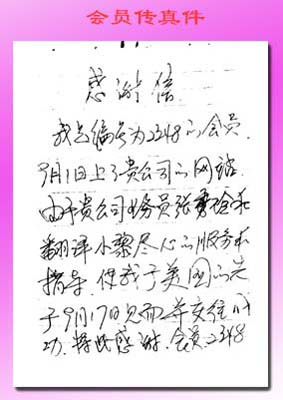 会员传真件
感谢信
我是编号为2348的会员.
9月1日上了贵公司的网站.
由于贵公司业务员张
翻译小黎尽心的服务和
指导.使我于美国的先
于9月17日见面并交往成
功.特此感谢.会员2348